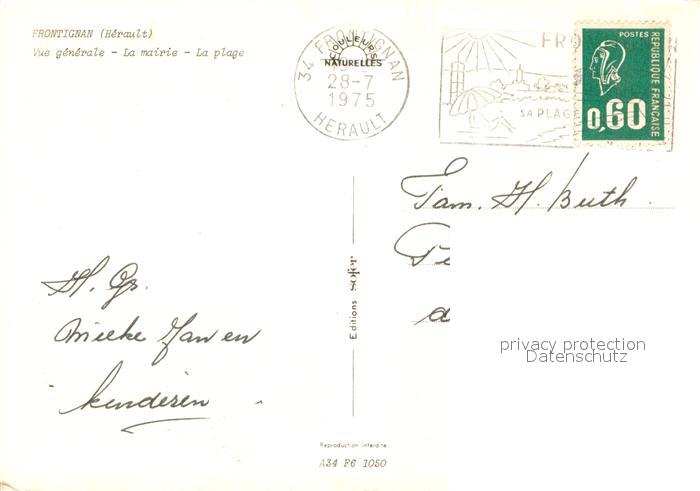 FRONTIGNAN (Hérault)
Vue générale - La mairie - La plage
COULEURS
NATURELLES
34 FRONTIGNAN
28-7
1975
HERAULT
FRO
SA PLAGE
POSTES
REPUBLIQUE FRANÇAISE
0,60
Fam. H. Buth.
H. Gr.
Mieke Jan en
kinderen
Editions sofer
privacy protection
Datenschutz
Reproduction interdite
A34 F6 1050